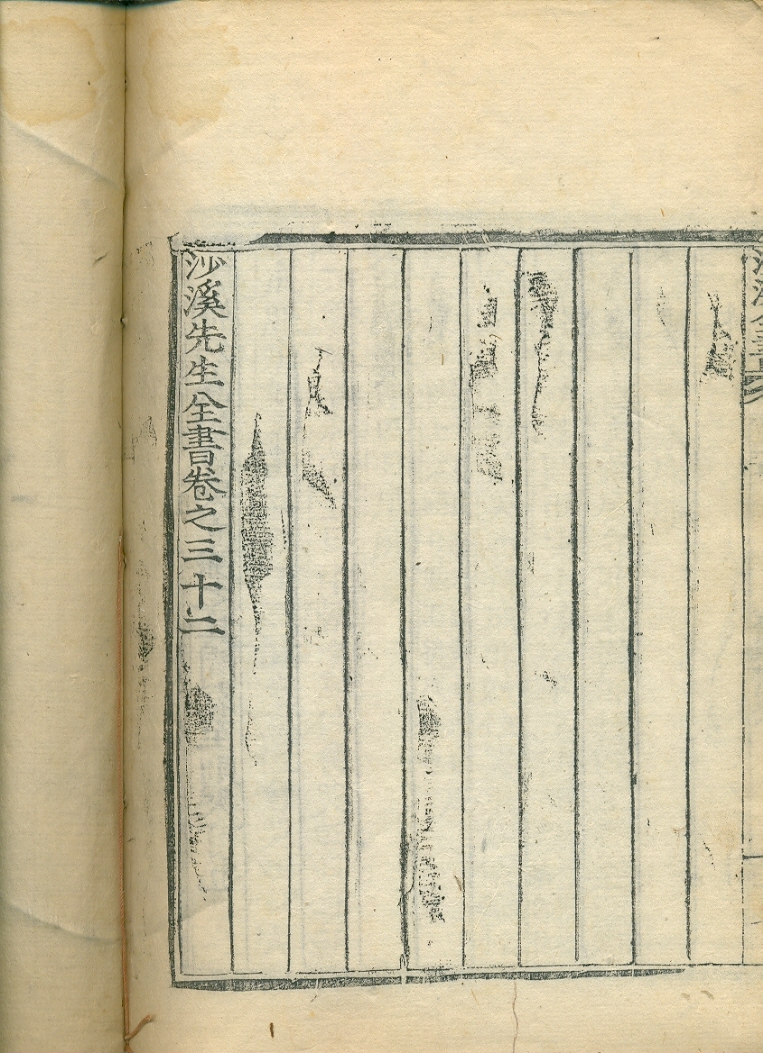 沙溪全書
沙溪先生全書卷之三十二